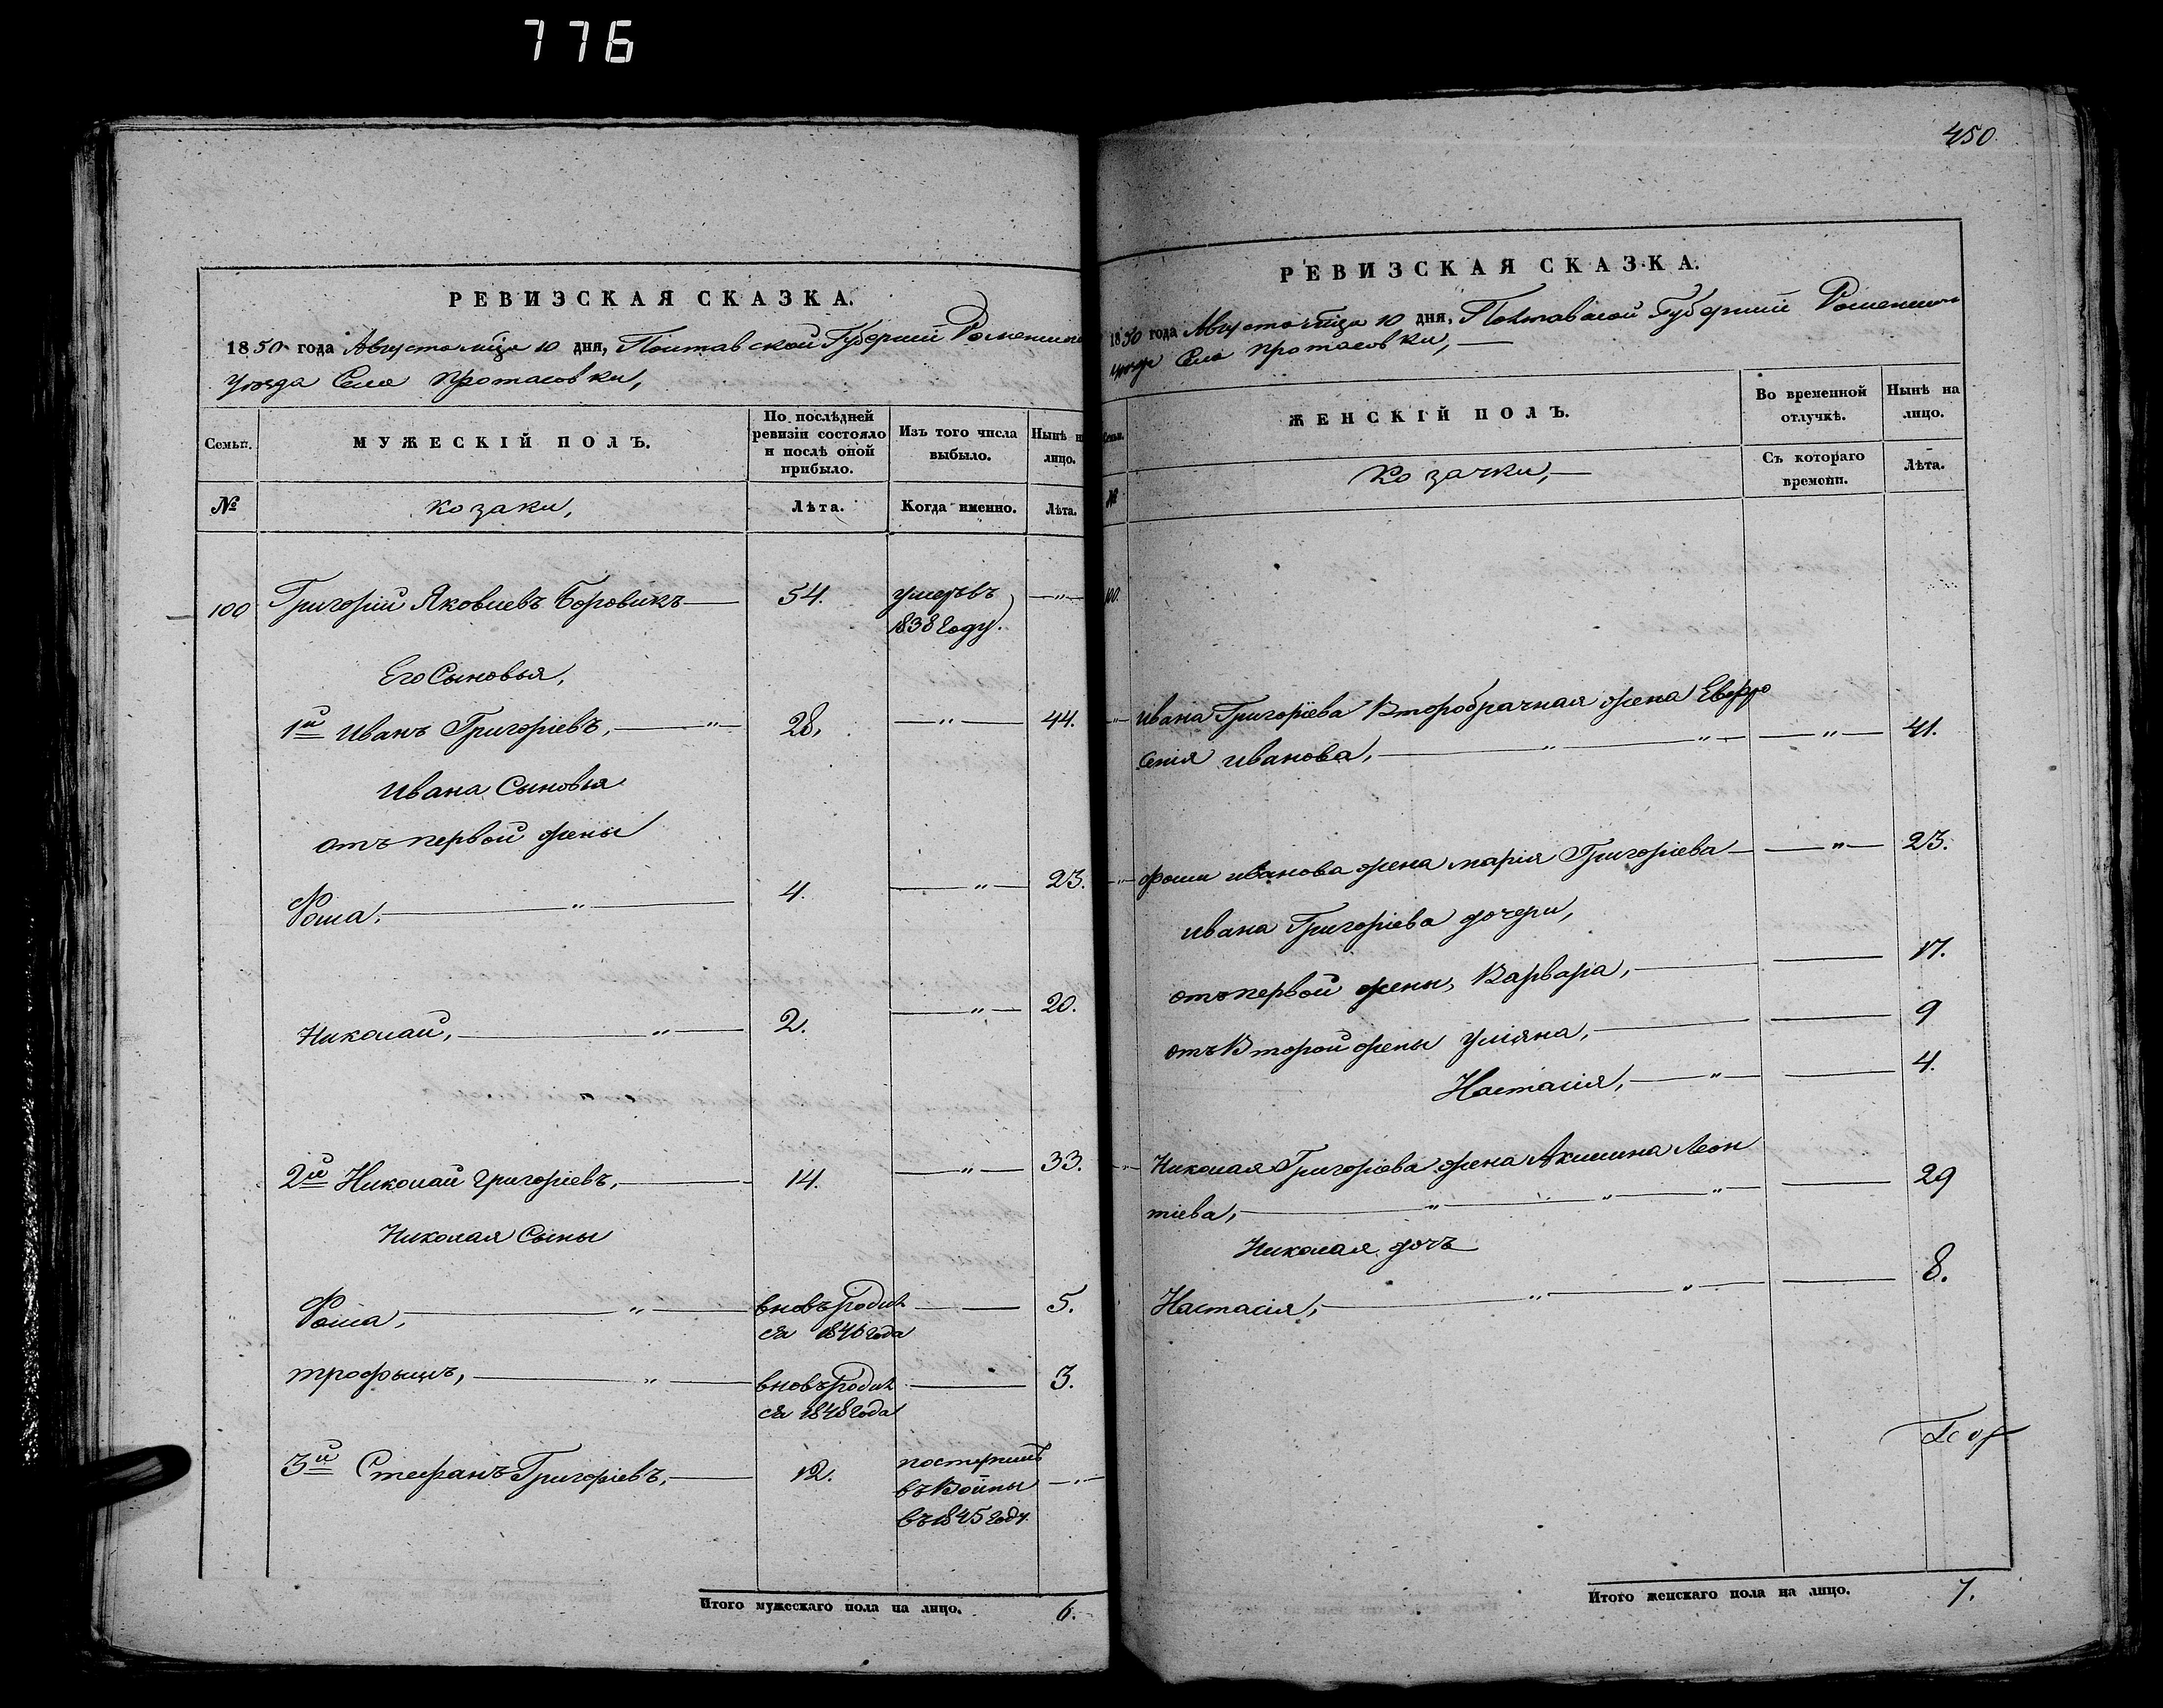 776
РЕВИЗСКАЯ СКАЗКА.
1850 года Августа мѣца 10 дня, Полтавской Губерніи Роменскаго
Уѣзда Села Протасовки,
Семьи.
МУЖЕСКІЙ ПОЛЪ.
По послѣдней ревизіи состояло и послѣ оной прибыло.
Изъ того числа выбыло.
Нынѣ на лицо.
№
козаки,
Лѣта.
Когда именно.
Лѣта.
100 Григорій Яковлевъ Боровикъ 54. умеръ въ
1838 году.
Его Сыновья,
1й Иванъ Григоріевъ, 28, 44.
Ивана Сыновья
отъ первой жены
Фома, 4. 23.
Николай, 2. 20.
2й Николай Григоріевъ, 14. 33.
Николая Сыны
Фома, вновь родил 5.
ся 1846 года
трофымъ, вновь родил 3.
ся 1848 года
3й Стефанъ Григоріевъ, 12.
въ 1845 году.
Итого мужескаго пола на лицо. 6.
450
РЕВИЗСКАЯ СКАЗКА.
1850 года Августа мѣца 10 дня, Полтавской Губерніи Роменскаго
уѣзда Села протасовки,
Семьи.
ЖЕНСКІЙ ПОЛЪ.
Во временной отлучкѣ.
Нынѣ на лицо.
№
козачки,
Съ котораго времени.
Лѣта.
100.
Ивана Григоріева Второбрачная жена Евфро
сенія иванова, 41.
фомы иванова жена марія Григоріева 23.
ивана Григоріева дочери,
отъ первой жены, Варвара, 17.
отъ Второй жены Уліяна, 9
Настасія, 4.
Николая Григоріева жена Акилина Леон
тіева, 29
Николая дочь
Настасія, 8.
Итого женскаго пола на лицо. 7.